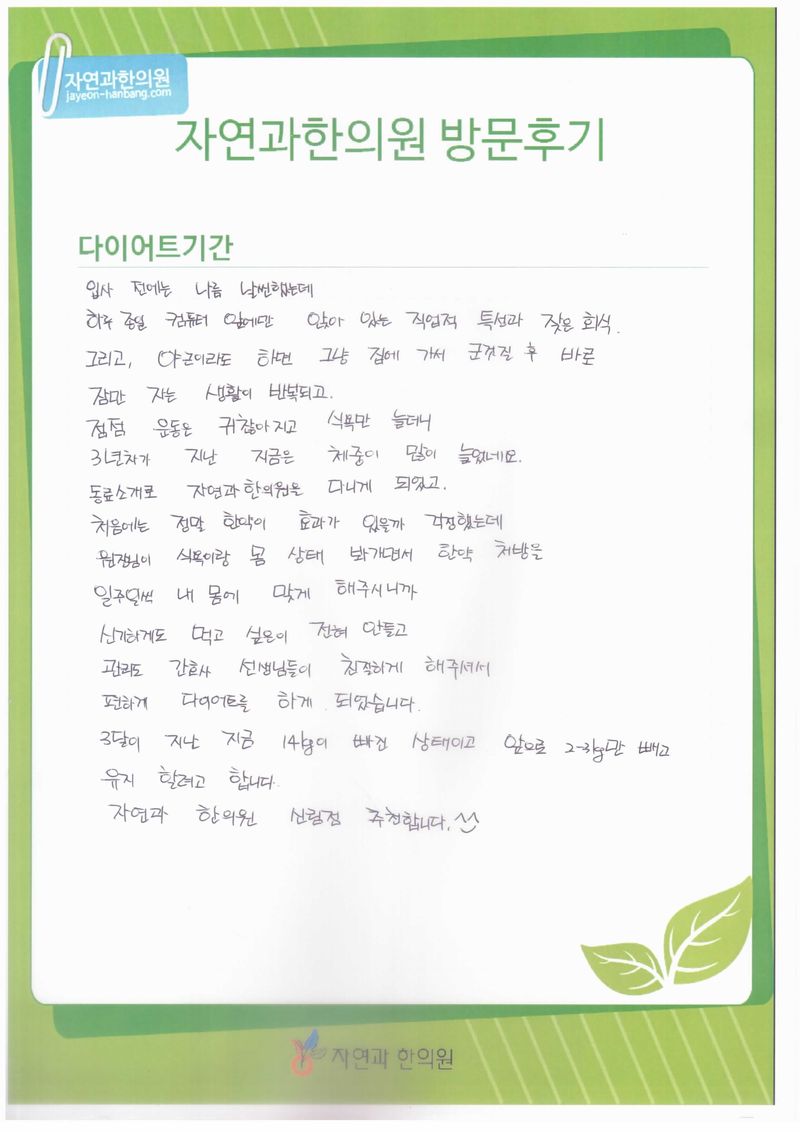 자연과한의원
jayeon-hanbang.com
자연과한의원 방문후기
다이어트기간
입사 전에는 나름 날씬했는데
하루 종일 컴퓨터 앞에만 앉아 있는 직업적 특성과 잦은 회식.
그리고, 야근이라도 하면 그냥 집에 가서 군것질 후 바로
잠만 자는 생활이 반복되고.
점점 운동은 귀찮아지고 식욕만 늘더니
3년차가 지난 지금은 체중이 많이 늘었네요.
동료소개로 자연과한의원을 다니게 되었고.
처음에는 정말 한약이 효과가 있을까 걱정했는데
원장님이 식욕이랑 몸 상태 봐가면서 한약 처방을
일주일씩 내 몸에 맞게 해주시니까
신기하게도 먹고 싶은이 전혀 안들고
관리도 간호사 선생님들이 친절하게 해주셔서
편하게 다이어트를 하게 되었습니다.
3달이 지난 지금 14kg이 빠진 상태이고 앞으로 2-3kg만 빼고
유지 할려고 합니다.
자연과 한의원 신림점 추천합니다. ^^
자연과 한의원